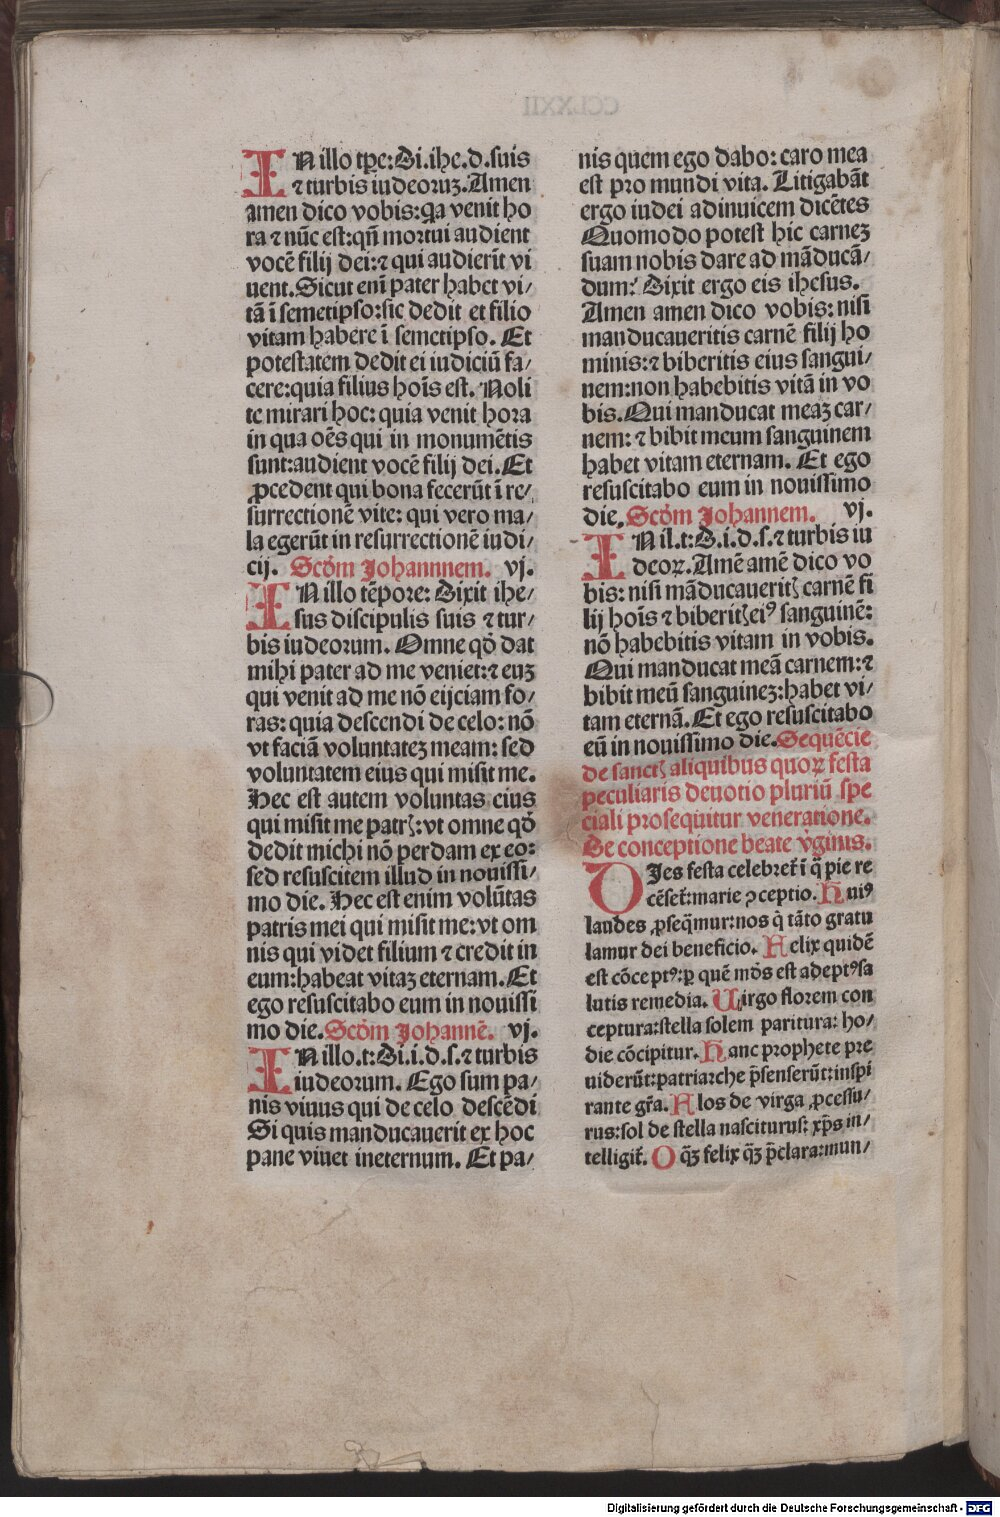 IN illo tp̄e: Di. ihe. d. suis
⁊ turbis iudeoruꝫ. Amen
amen dico vobis: qa venit ho
ra ⁊ nūc est: qn̄ mortui audient
vocē filij dei: ⁊ qui audierīt vi
uent. Sicut eni pater habet vi/
tā ī semetipso: sic dedit et filio
vitam habere ī semetipso. Et
potestatem dedit ei iudiciū fa/
cere: quia filius hoīs est. Noli
te mirari hoc: quia venit hora
in qua oēs qui in monumētis
sunt: audient vocē filij dei. Et
ꝓcedent qui bona fecerūt ī re/
surrectionē vite: qui vero ma/
la egerūt in resurrectionē iudi/
cij. Scd̄m Johannnem. vj.
IN illo tēpore: Dixit ihe/
sus discipulis suis ⁊ tur/
bis iudeorum. Omne qd̄ dat
mihi pater ad me veniet: ⁊ euꝫ
qui venit ad me nō eijciam fo/
ras: quia descendi de celo: nō
vt faciā voluntateꝫ meam: sed
voluntatem eius qui misit me.
Hec est autem voluntas eius
qui misit me patrꝭ: vt omne qd̄
dedit michi nō perdam ex eo:
sed resuscitem illud in nouissi/
mo die. Hec est enim volūtas
patris mei qui misit me: vt om
nis qui videt filium ⁊ credit in
eum: habeat vitaꝫ eternam. Et
ego resuscitabo eum in nouissi
mo die. Scd̄m Johannē. vj.
IN illo. t: Di. i. d. s. ⁊ turbis
iudeorum. Ego sum pa/
nis viuus qui de celo descēdi
Si quis manducauerit ex hoc
pane viuet ineternum. Et pa/
nis quem ego dabo: caro mea
est pro mundi vita. Litigabāt
ergo iudei adinuicem dicētes
Quomodo potest hic carneꝫ
suam nobis dare ad māducā/
dum? Dixit ergo eis ihesus.
Amen amen dico vobis: nisi
manducaueritis carnē filij ho
minis: ⁊ biberitis eius sangui/
nem: non habebitis vitā in vo
bis. Qui manducat meaꝫ car/
nem: ⁊ bibit meum sanguinem
habet vitam eternam. Et ego
resuscitabo eum in nouissimo
die. Scd̄m Johannem. vj.
IN il. t: D. i. d. s. ⁊ turbis iu
deoꝝ. Amē amē dico vo
bis: nisi māducaueritꝭ carnē fi
lij hoīs ⁊ biberitꝭ eiꝰ sanguinē:
nō habebitis vitam in vobis.
Qui manducat meā carnem: ⁊
bibit meū sanguineꝫ: habet vi/
tam eternā. Et ego resuscitabo
eū in nouissimo die. Sequēcie
de sanctꝭ aliquibus quoꝝ festa
peculiaris deuotio pluriū spe
ciali prosequitur veneratione.
De conceptione beate v̄ginis.
DIes festa celebret᷑ ī q̄ pie re
cēset᷑: marie ꝯceptio. Huiꝰ
laudes ꝓseqmur: nos q̄ tāto gratu
lamur dei beneficio. Felix quidē
est cōceptꝰ: ꝑ quē mūds est adeptꝰ sa
lutis remedia. Uirgo florem con
ceptura: stella solem paritura: ho/
die cōcipitur. Hanc prophete pre
uiderūt: patriarche p̄senserūt: inspi
rante gr̄a. Flos de virga ꝓcessu/
rus: sol de stella nasciturus: xp̄s in/
telligit᷑. O qꝫ felix qꝫ p̄clara: mun/
Digitalisierung gefördert durch die Deutsche Forschungsgemeinschaft - DFG